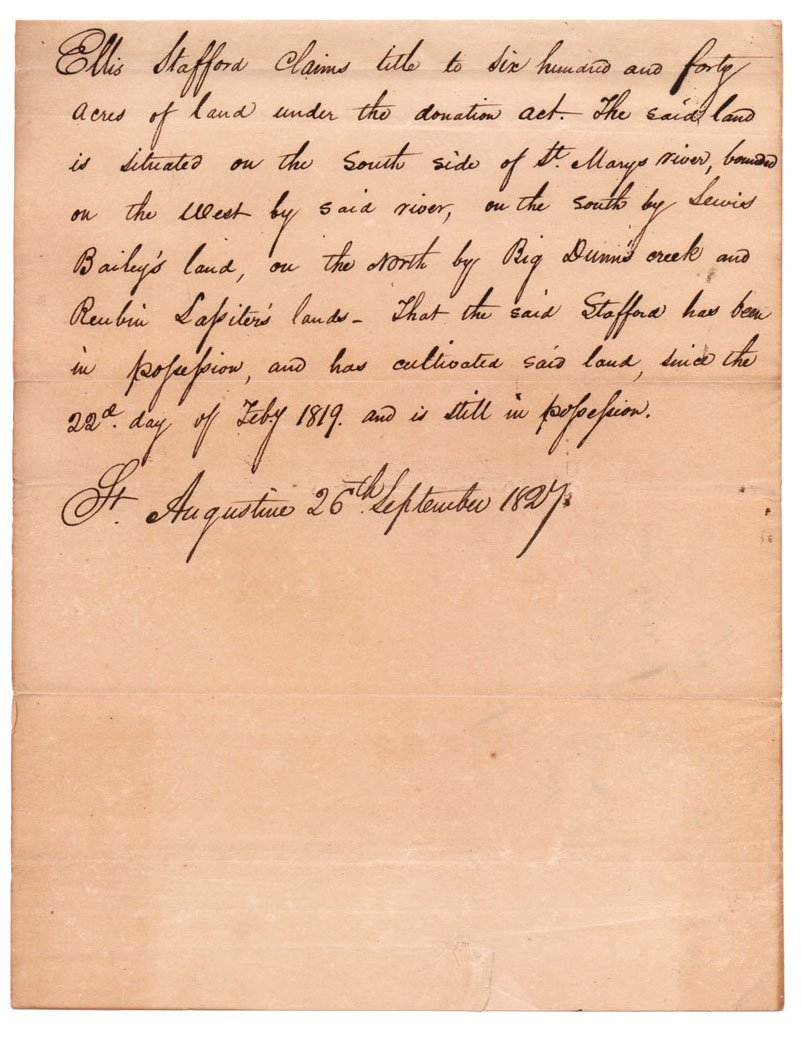 Ellis Stafford Claims title to six hundred and forty
acres of land under the donation act. The said land
is situated on the South side of St. Marys river, bounded
on the West by said river, on the South by Lewis
Bailey's land, on the North by Big Dunn's creek and
Reubin Lassiter's lands - That the said Stafford has been
in possession, and has cultivated said land, since the
22d. day of Feby 1819. and is still in possession.
St. Augustine 26th September 1827.